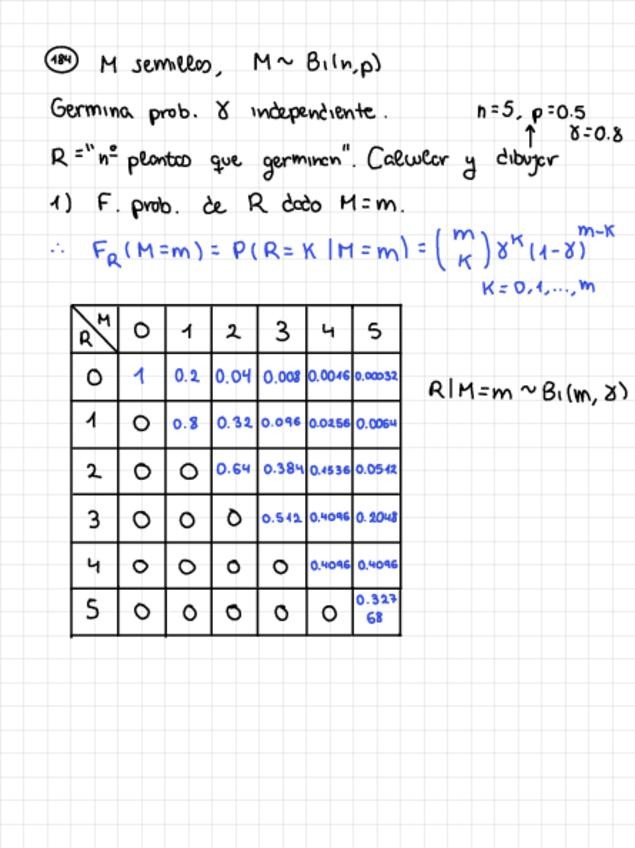 184 M semillas, M ~ Bi(n,p)
Germina prob. γ independiente. n=5, p=0.5
↑ γ=0.8
R="nº plantas que germinen". Calcular y dibujar
1) F. prob. de R dado M=m.
∴ F_R (M=m) = P(R=K | M=m) = (m K) γ^K (1-γ)^{m-K}
K=0,1,...,m
R\M 0 1 2 3 4 5
0 1 0.2 0.04 0.008 0.0016 0.00032
R|M=m ~ Bi(m, γ)
1 0 0.8 0.32 0.096 0.0256 0.0064
2 0 0 0.64 0.384 0.1536 0.0512
3 0 0 0 0.512 0.4096 0.2048
4 0 0 0 0 0.4096 0.4096
5 0 0 0 0 0 0.32768